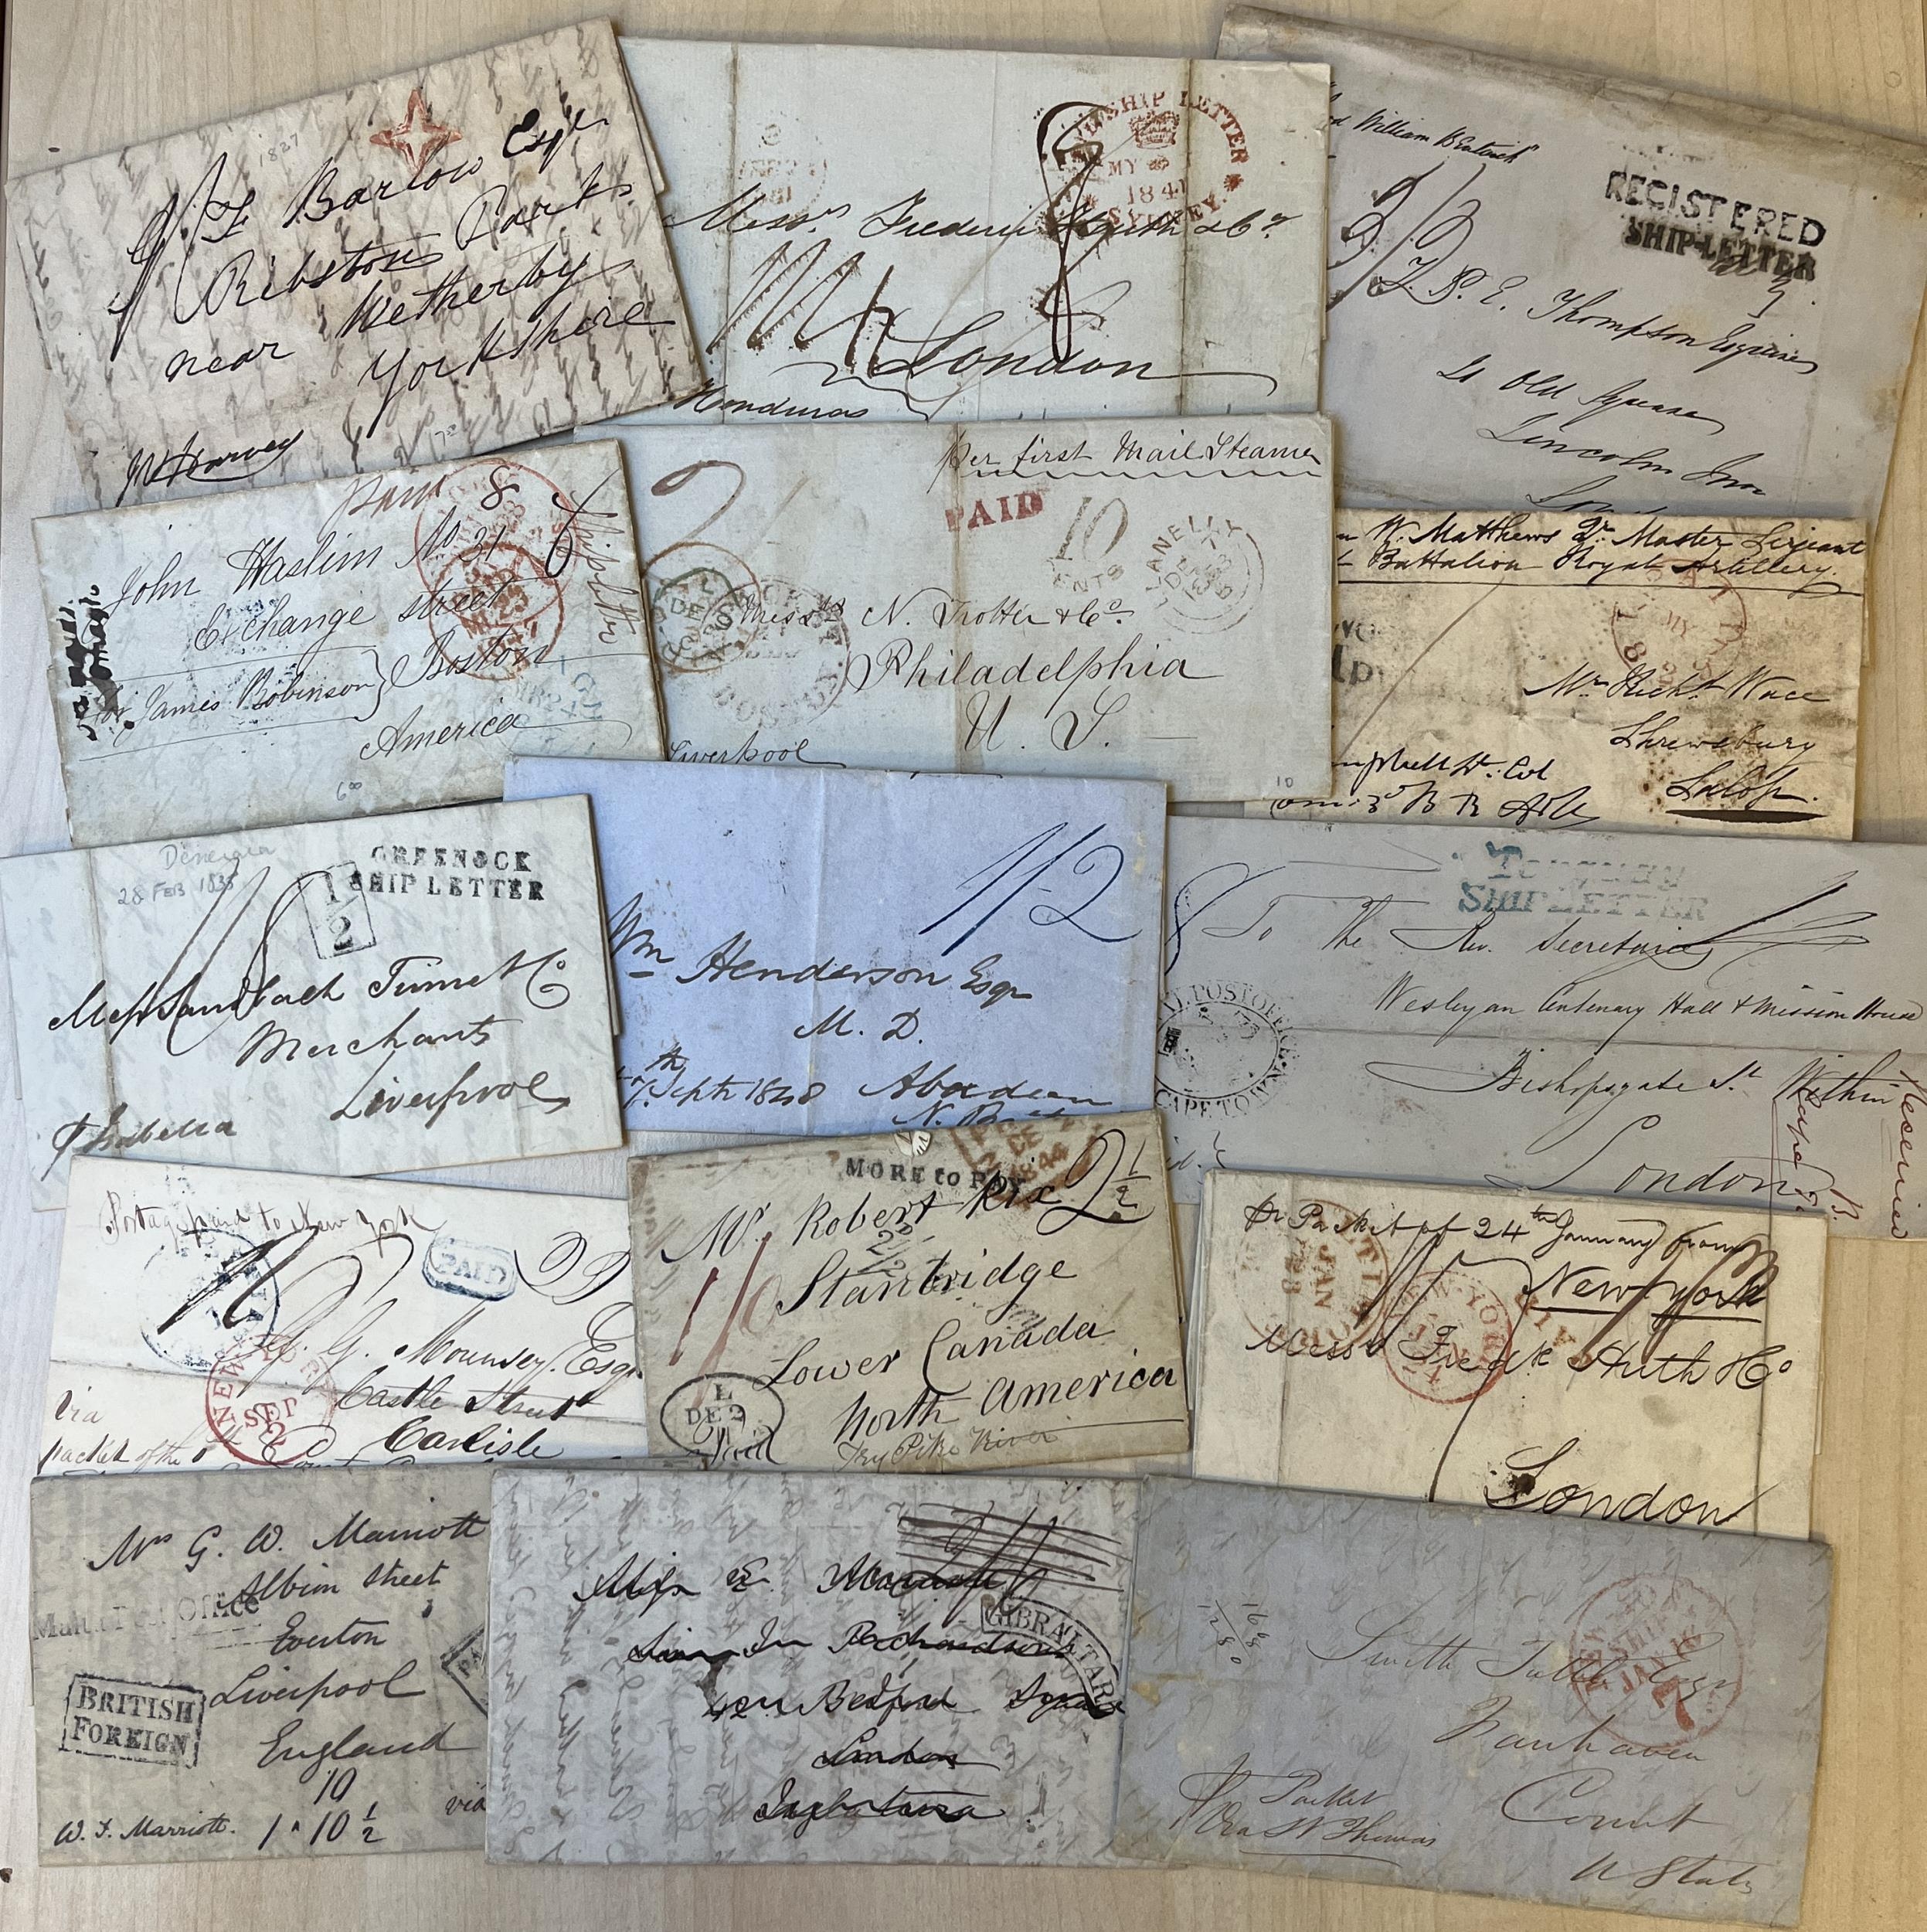 1827
J. F. Barlow Esqr
Ribston Park
near Wetherby
Yorkshire
W Harvey
SHIP LETTER
MY
1841
SYDNEY
8
Messrs Frederick Huth & Co.
London
Honduras
William Bentinck"
REGISTERED
SHIP-LETTER
T. P. E. Thompson Esquire
Old Square
Lincoln Inn
Paid 8
John Haslim No 21
Exchange street
Boston
for James Robinson
America
Shipletter
per first Mail Steamer
PAID
10
CENTS
LLANELLY
DE 7
Messrs N. Trotter & Co.
Philadelphia
U. S.
Liverpool
10
W. Matthews Qr. Master Serjeant
Battalion Royal Artillery.
MY
Mr Richd Wace
Shrewsbury
Salop.
Lt. Col
Demerara
28 FEB 1835
GREENOCK
SHIP LETTER
1/2
Messrs Sandbach Tinne & Co
Merchants
Liverpool
p Isabella
1/2
Wm Henderson Esqr
M. D.
Septr 1848 Aberdeen
N. B.
Torquay
SHIP LETTER
To The Rev. Secretaries
Wesleyan Centenary Hall & Mission House
Bishopsgate St. Within
London
POST OFFICE
CAPE TOWN
Received
Postage paid to New York
PAID
G. G. Mounsey Esqr
Castle Street
Carlisle
NEW YORK
SEP
2
via
packet of the
MORE to PAY
DE
1844
2 1/2
Mr Robert Rix
Stanbridge
Lower Canada
North America
Try Pike River
L
DE 2
Paid
Pr Packet of 24th January from
New York
JAN
NEW-YORK
JAN
24
Messrs Fredk Huth & Co
London
Mrs G. W. Marriott
Albion Street
Everton
Liverpool
England
Malta Post Office
BRITISH
FOREIGN
10
W. F. Marriott. 1 " 10 1/2
via
Miss E.
GIBRALTAR
42 Bedford Square
London
SHIP
JAN 16
Smith Tuttle Esqr
Fairhaven
Connt
U States
Pr Packet
Via St Thomas